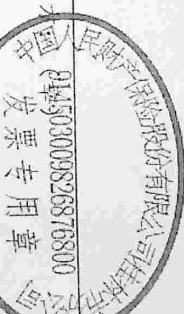 中国人民财产保险股份有限公司桂林市分公司
914503009826876800
发票专用章